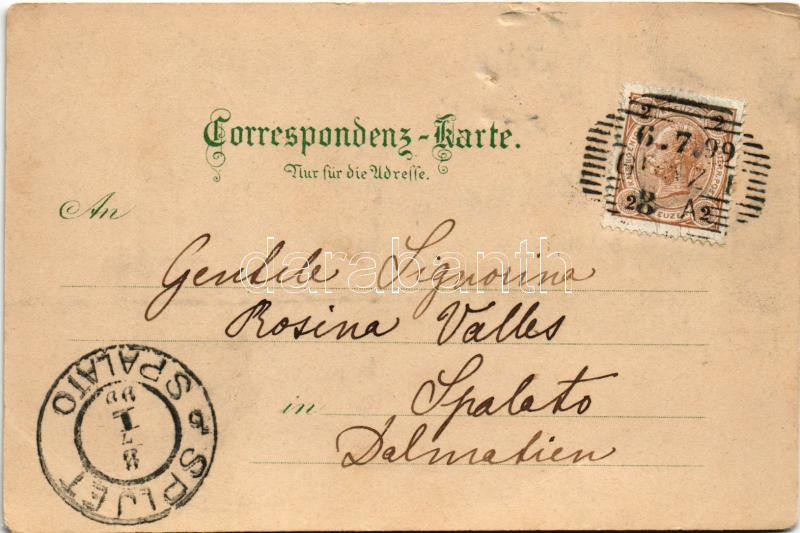 Correspondenz-Karte.
Nur für die Adresse.
An
Gentile Signorina
Rosina Valles
in Spalato
Dalmatien
2 2
6.7.99
GRAZ 1
8 A
2 2
SPALATO
SPLJET
8
7
99
darabanth